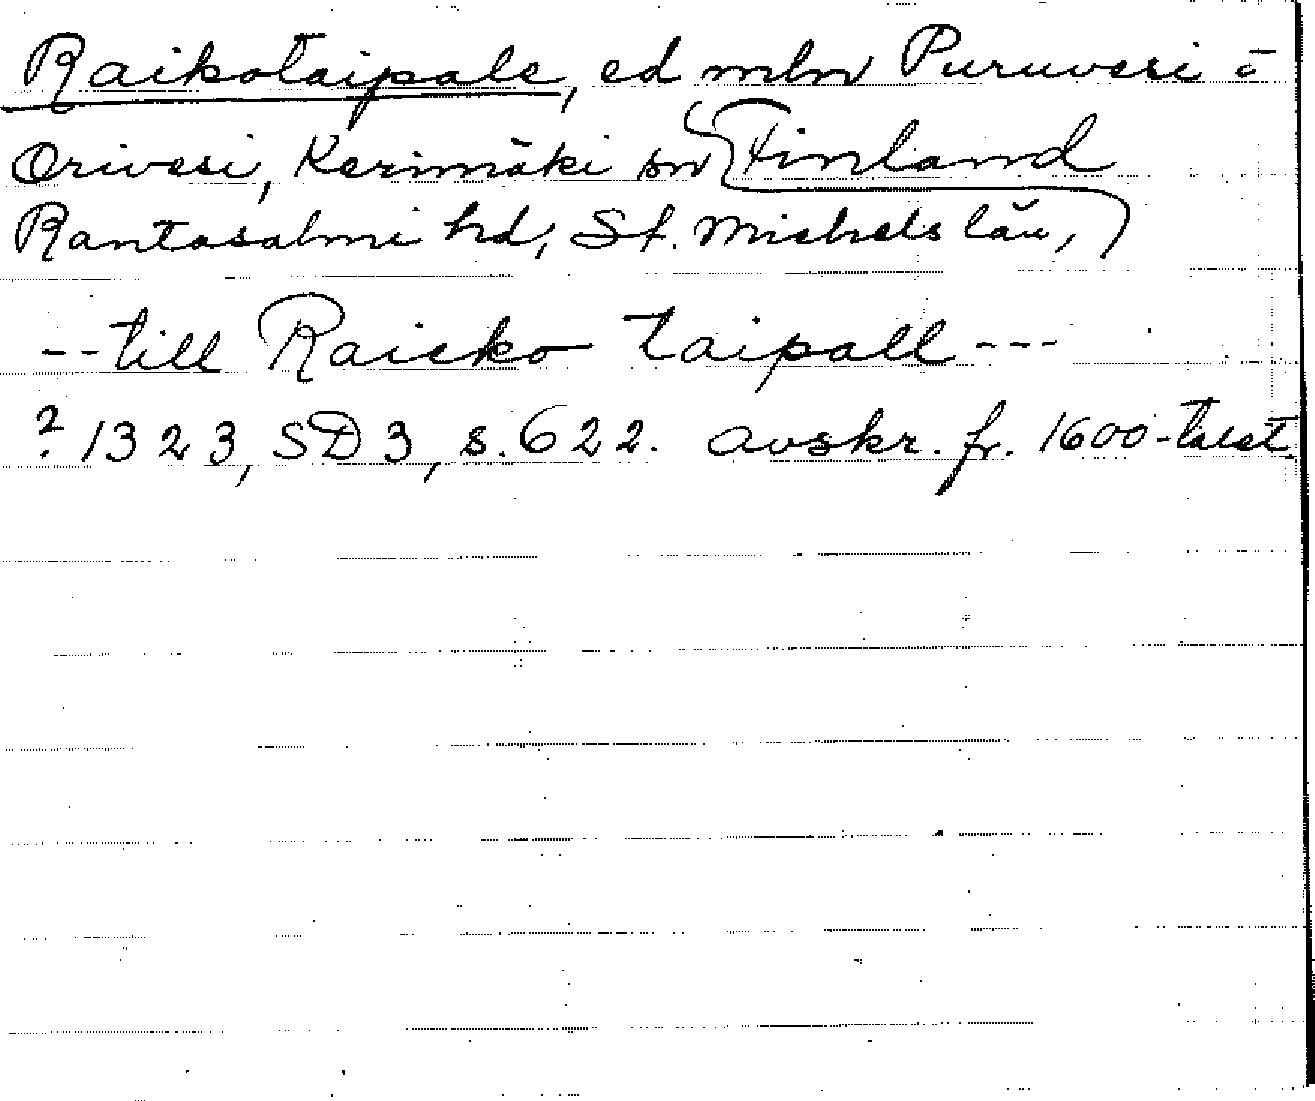 Raikotaipale, ed mln Puruvesi o
Orivesi, Kerimäki sn Finland
Rantasalmi hd, St. Michels län,
-- till Raicko taipall ---
? 1323, SD 3, s. 622. avskr. fr. 1600-talet.